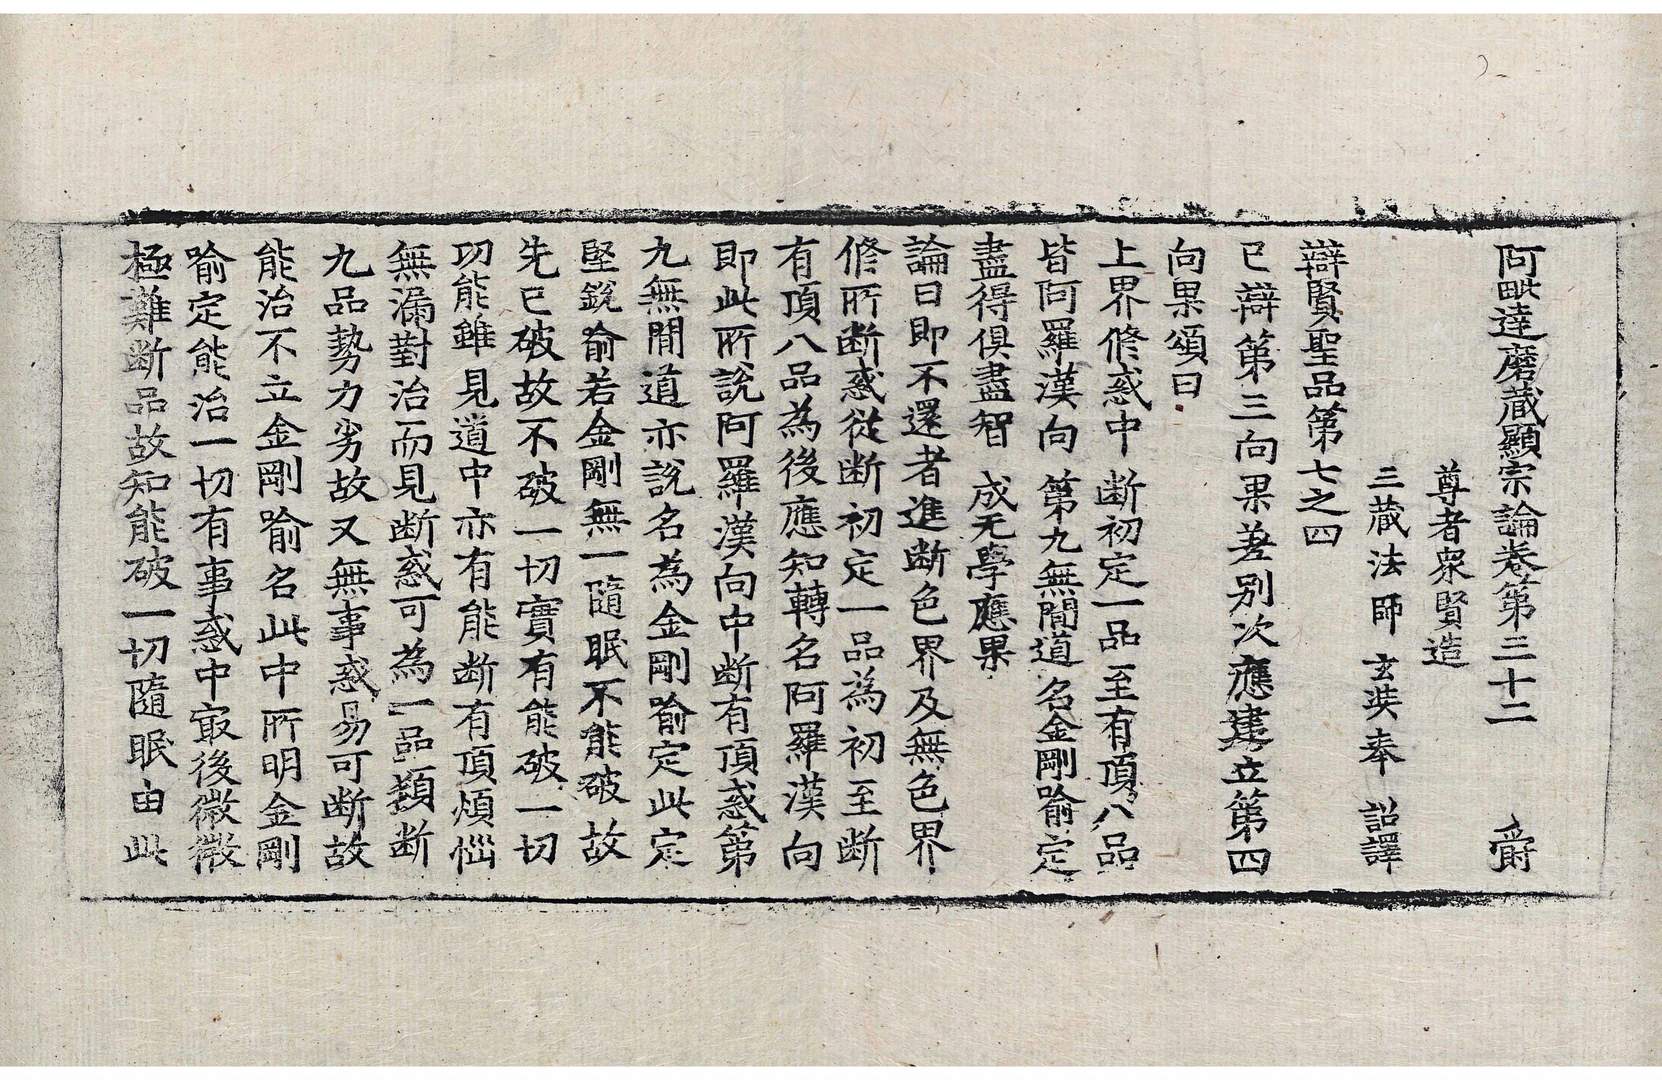 阿毗達磨藏顯宗論卷第三十二　爵
尊者衆賢造
三藏法師　玄奘奉　詔譯
辯賢聖品第七之四
已辯第三向果差別次應建立第四
向果頌曰
上界修惑中　斷初定一品　至有頂八品
皆阿羅漢向　第九無間道　名金剛喻定
盡得俱盡智　成无學應果
論曰即不還者進斷色界及無色界
修所斷惑從斷初定一品為初至斷
有頂八品為後應知轉名阿羅漢向
即此所說阿羅漢向中斷有頂惑第
九無間道亦說名為金剛喻定此定
堅銳喻若金剛無一隨眠不能破故
先已破故不破一切實有能破一切
功能雖見道中亦有能斷有頂煩惱
無漏對治而見斷惑可為一品類斷
九品勢力劣故又無事惑易可斷故
能治不立金剛喻名此中所明金剛
喻定能治一切有事惑中寂後微微
極難斷品故知能破一切隨眠由此